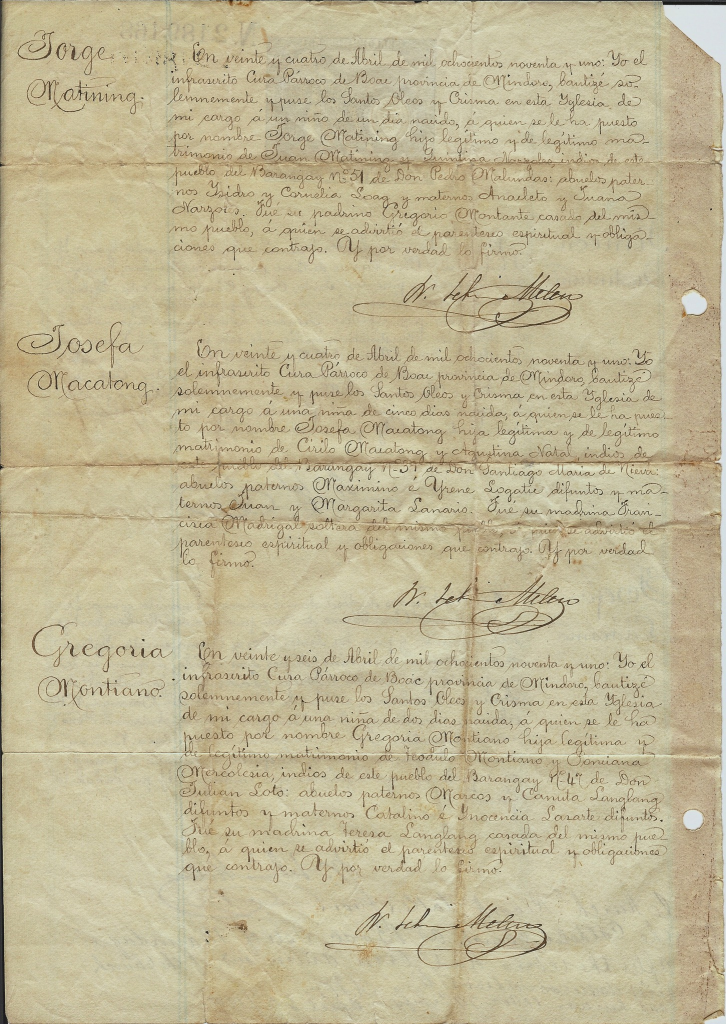 Jorge
Matining.
En veinte y cuatro de Abril de mil ochocientos noventa y uno: Yo el
infrascrito Cura Párroco de Boac provincia de Mindoro, bautizé so-
lemnemente y puse los Santos Oleos y Crisma en esta Yglesia de
mi cargo á un niño de un dia nacido, á quien se le ha puesto
por nombre Jorge Matining hijo legítimo y de legítimo ma-
trimonio de Juan Matining y Narzoles indios de este
pueblo del Barangay Nº 31 de Don Pedro Malundas: abuelos pater-
nos Ysidro y Cornelia Loag y maternos Anacleto y Juana
Narzoles. Fué su padrino Gregorio Montante casado del mis-
mo pueblo, á quien se advirtió el parentesco espiritual y obliga-
ciones que contrajo. Y por verdad lo firmo.
Josefa
Macatong.
En veinte y cuatro de Abril de mil ochocientos noventa y uno: Yo
el infrascrito Cura Párroco de Boac provincia de Mindoro, bautizé
solemnemente y puse los Santos Oleos y Crisma en esta Yglesia de
mi cargo á una niña de cinco dias nacida, á quien se le ha pues-
to por nombre Josefa Macatong hija legítima y de legítimo
matrimonio de Cirilo Macatong y Agustina Natal, indios de
este pueblo del Barangay Nº de Don Santiago Maria de Nieva:
abuelos paternos Maximino é Yrene Logatic difuntos y ma-
ternos Juan y Margarita Lanario. Fué su madrina Fran-
cisca Madrigal soltera del mismo pueblo á quien se advirtió el
parentesco espiritual y obligaciones que contrajo. Y por verdad
lo firmo.
Gregoria
Montiano.
En veinte y seis de Abril de mil ochocientos noventa y uno: Yo el
infrascrito Cura Párroco de Boac provincia de Mindoro, bautizé
solemnemente y puse los Santos Oleos y Crisma en esta Yglesia
de mi cargo á una niña de dos dias nacida, á quien se le ha
puesto por nombre Gregoria Montiano hija legítima y
de legítimo matrimonio de Teodulo Montiano y Ponciana
Mercolesia, indios de este pueblo del Barangay Nº 47 de Don
Julian Loto: abuelos paternos Marcos y Canuta Langlang
difuntos y maternos Catalino é Ynocencia Lasarte difuntos.
Fué su madrina Teresa Langlang casada del mismo pue-
blo, á quien se advirtió el parentesco espiritual y obligaciones
que contrajo. Y por verdad lo firmo.